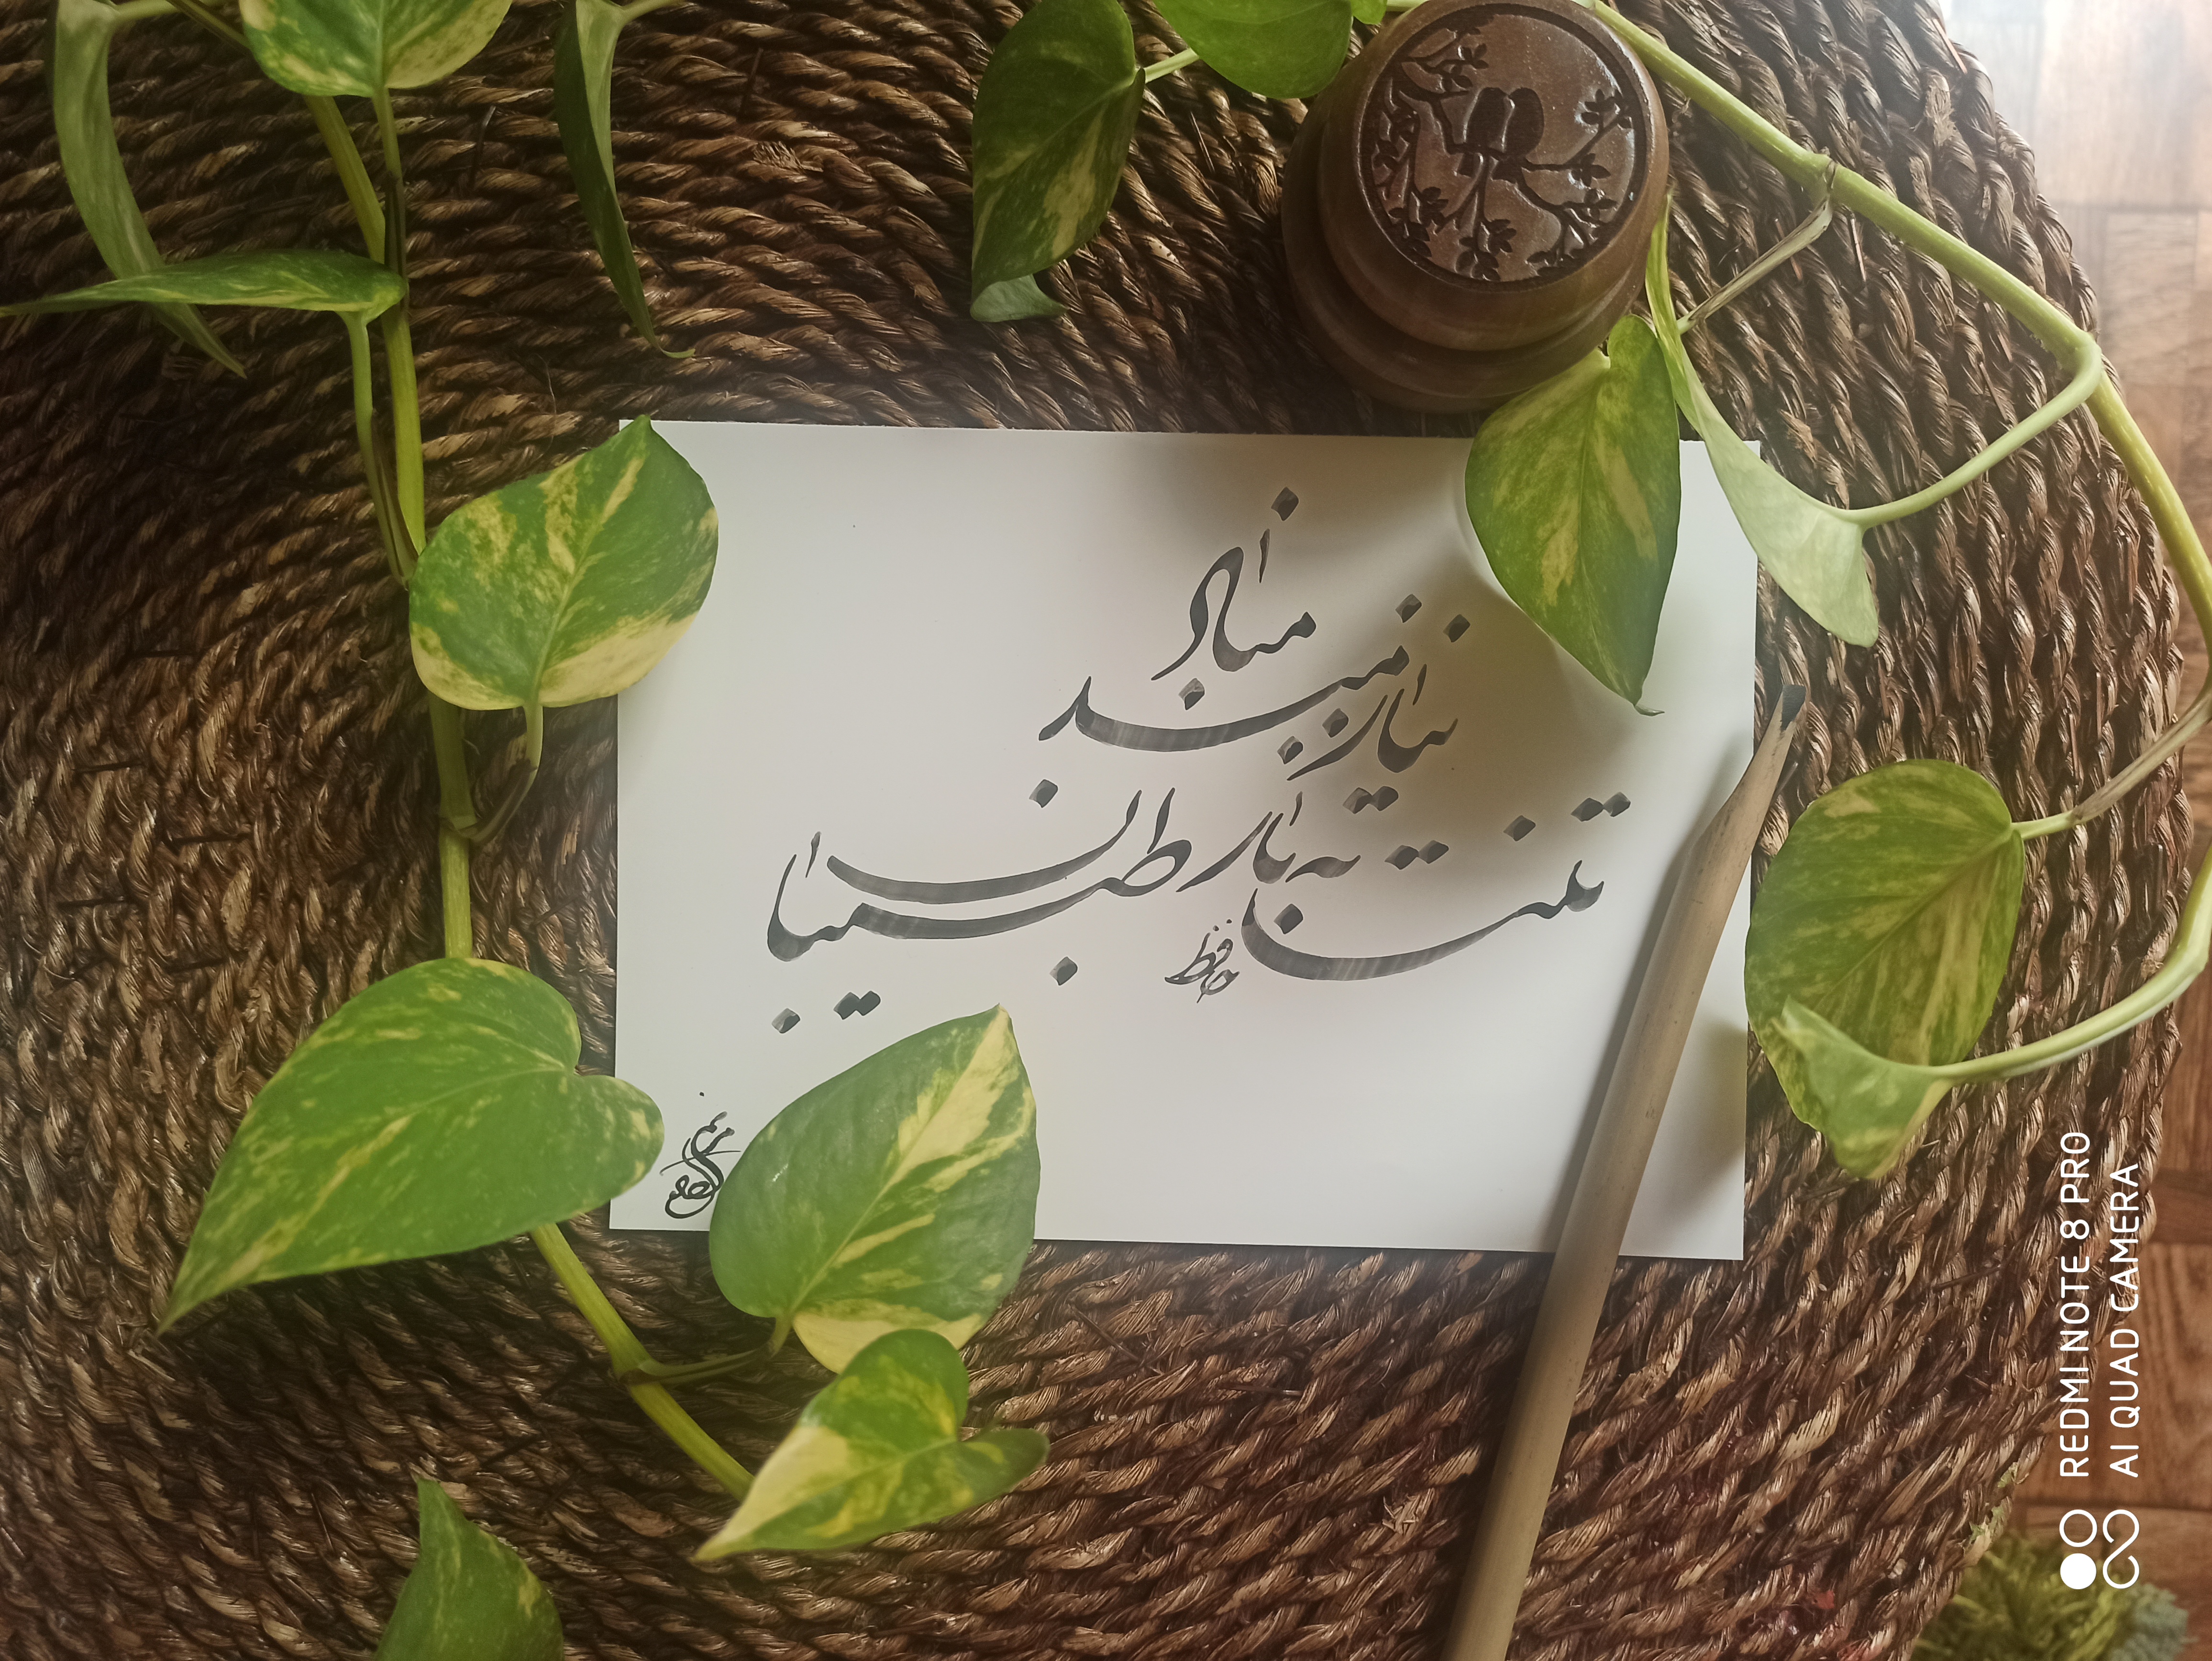 تنت به ناز طبیبان
نیازمند
مباد
حافظ
مریم
REDMI NOTE 8 PRO
AI QUAD CAMERA